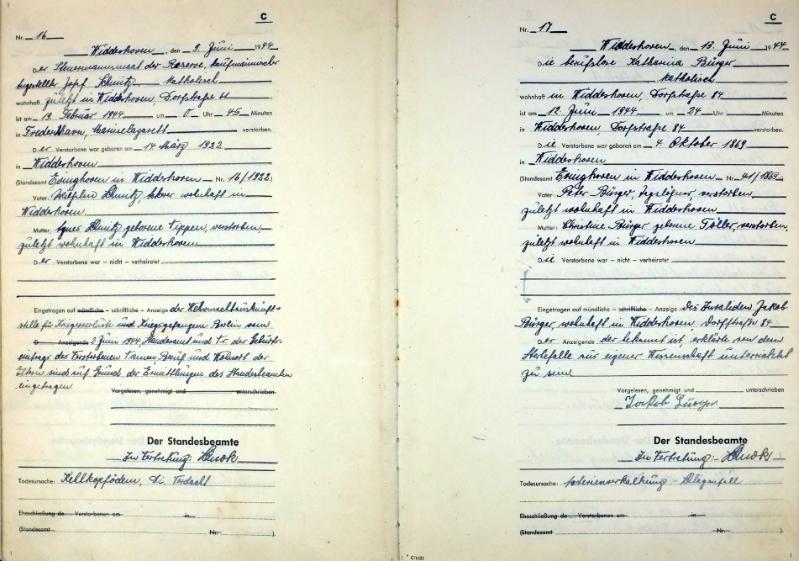 C
Nr. 16
Widdeshoven, den 9. Juni 1944
Der der Reserve, kaufmännischer
Angestellte Josef Schmitz, katholisch
wohnhaft zuletzt in Widdeshoven, Dorfstraße
ist am 19. Februar 1944 um 0 Uhr 45 Minuten
in Frederikshavn, Marinelazarett verstorben.
Der Verstorbene war geboren am 14 März 1922
in Widdeshoven
(Standesamt Evinghoven in Widdeshoven Nr. 16/1922
Vater: Schmitz wohnhaft in
Widdeshoven
Mutter: Agnes Schmitz geborene Tippen, verstorben,
zuletzt wohnhaft in Widdeshoven
Der Verstorbene war – nicht – verheiratet
Eingetragen auf mündliche – schriftliche – Anzeige der Wehrmachtauskunft-
stelle für Kriegerverluste und Kriegsgefangene Berlin vom
D Anzeigende 2 Juni 1944, Standesamt und Nr. der Geburts-
eintrags des Verstorbenen Namen Beruf und Wohnort der
Eltern sind auf Grund der Ermittlungen des Standesbeamten
eingetragen
Vorgelesen, genehmigt und unterschrieben
Der Standesbeamte
In Vertretung:
Todesursache:
Eheschließung de Verstorbenen am in
(Standesamt Nr. ).
C
Nr. 17
Widdeshoven, den 13. Juni 1944
Die berufslose Katharina Bürger
katholisch
wohnhaft in Widdeshoven, Dorfstraße 84
ist am 12 Juni 1944 um 24 Uhr Minuten
in Widdeshoven Dorfstraße 84 verstorben.
Die Verstorbene war geboren am 4. Oktober 1869
in Widdeshoven
(Standesamt Evinghoven in Widdeshoven Nr. 41/1869
Vater: Peter Bürger, Tagelöhner, verstorben,
zuletzt wohnhaft in Widdeshoven
Mutter: Christine Bürger geborene Töller, verstorben,
zuletzt wohnhaft in Widdeshoven
Die Verstorbene war – nicht – verheiratet
Eingetragen auf mündliche – schriftliche – Anzeige des Invaliden Jakob
Bürger, wohnhaft in Widdeshoven, Dorfstraße 84
Der Anzeigende der bekannt ist, erklärte von dem
Sterbefalle aus eigener Wissenschaft unterrichtet
zu sein
Vorgelesen, genehmigt und unterschrieben
Jackob Bürger
Der Standesbeamte
In Vertretung:
Todesursache: Arterienverkalkung – Schlaganfall
Eheschließung de Verstorbenen am in
(Standesamt Nr. ).